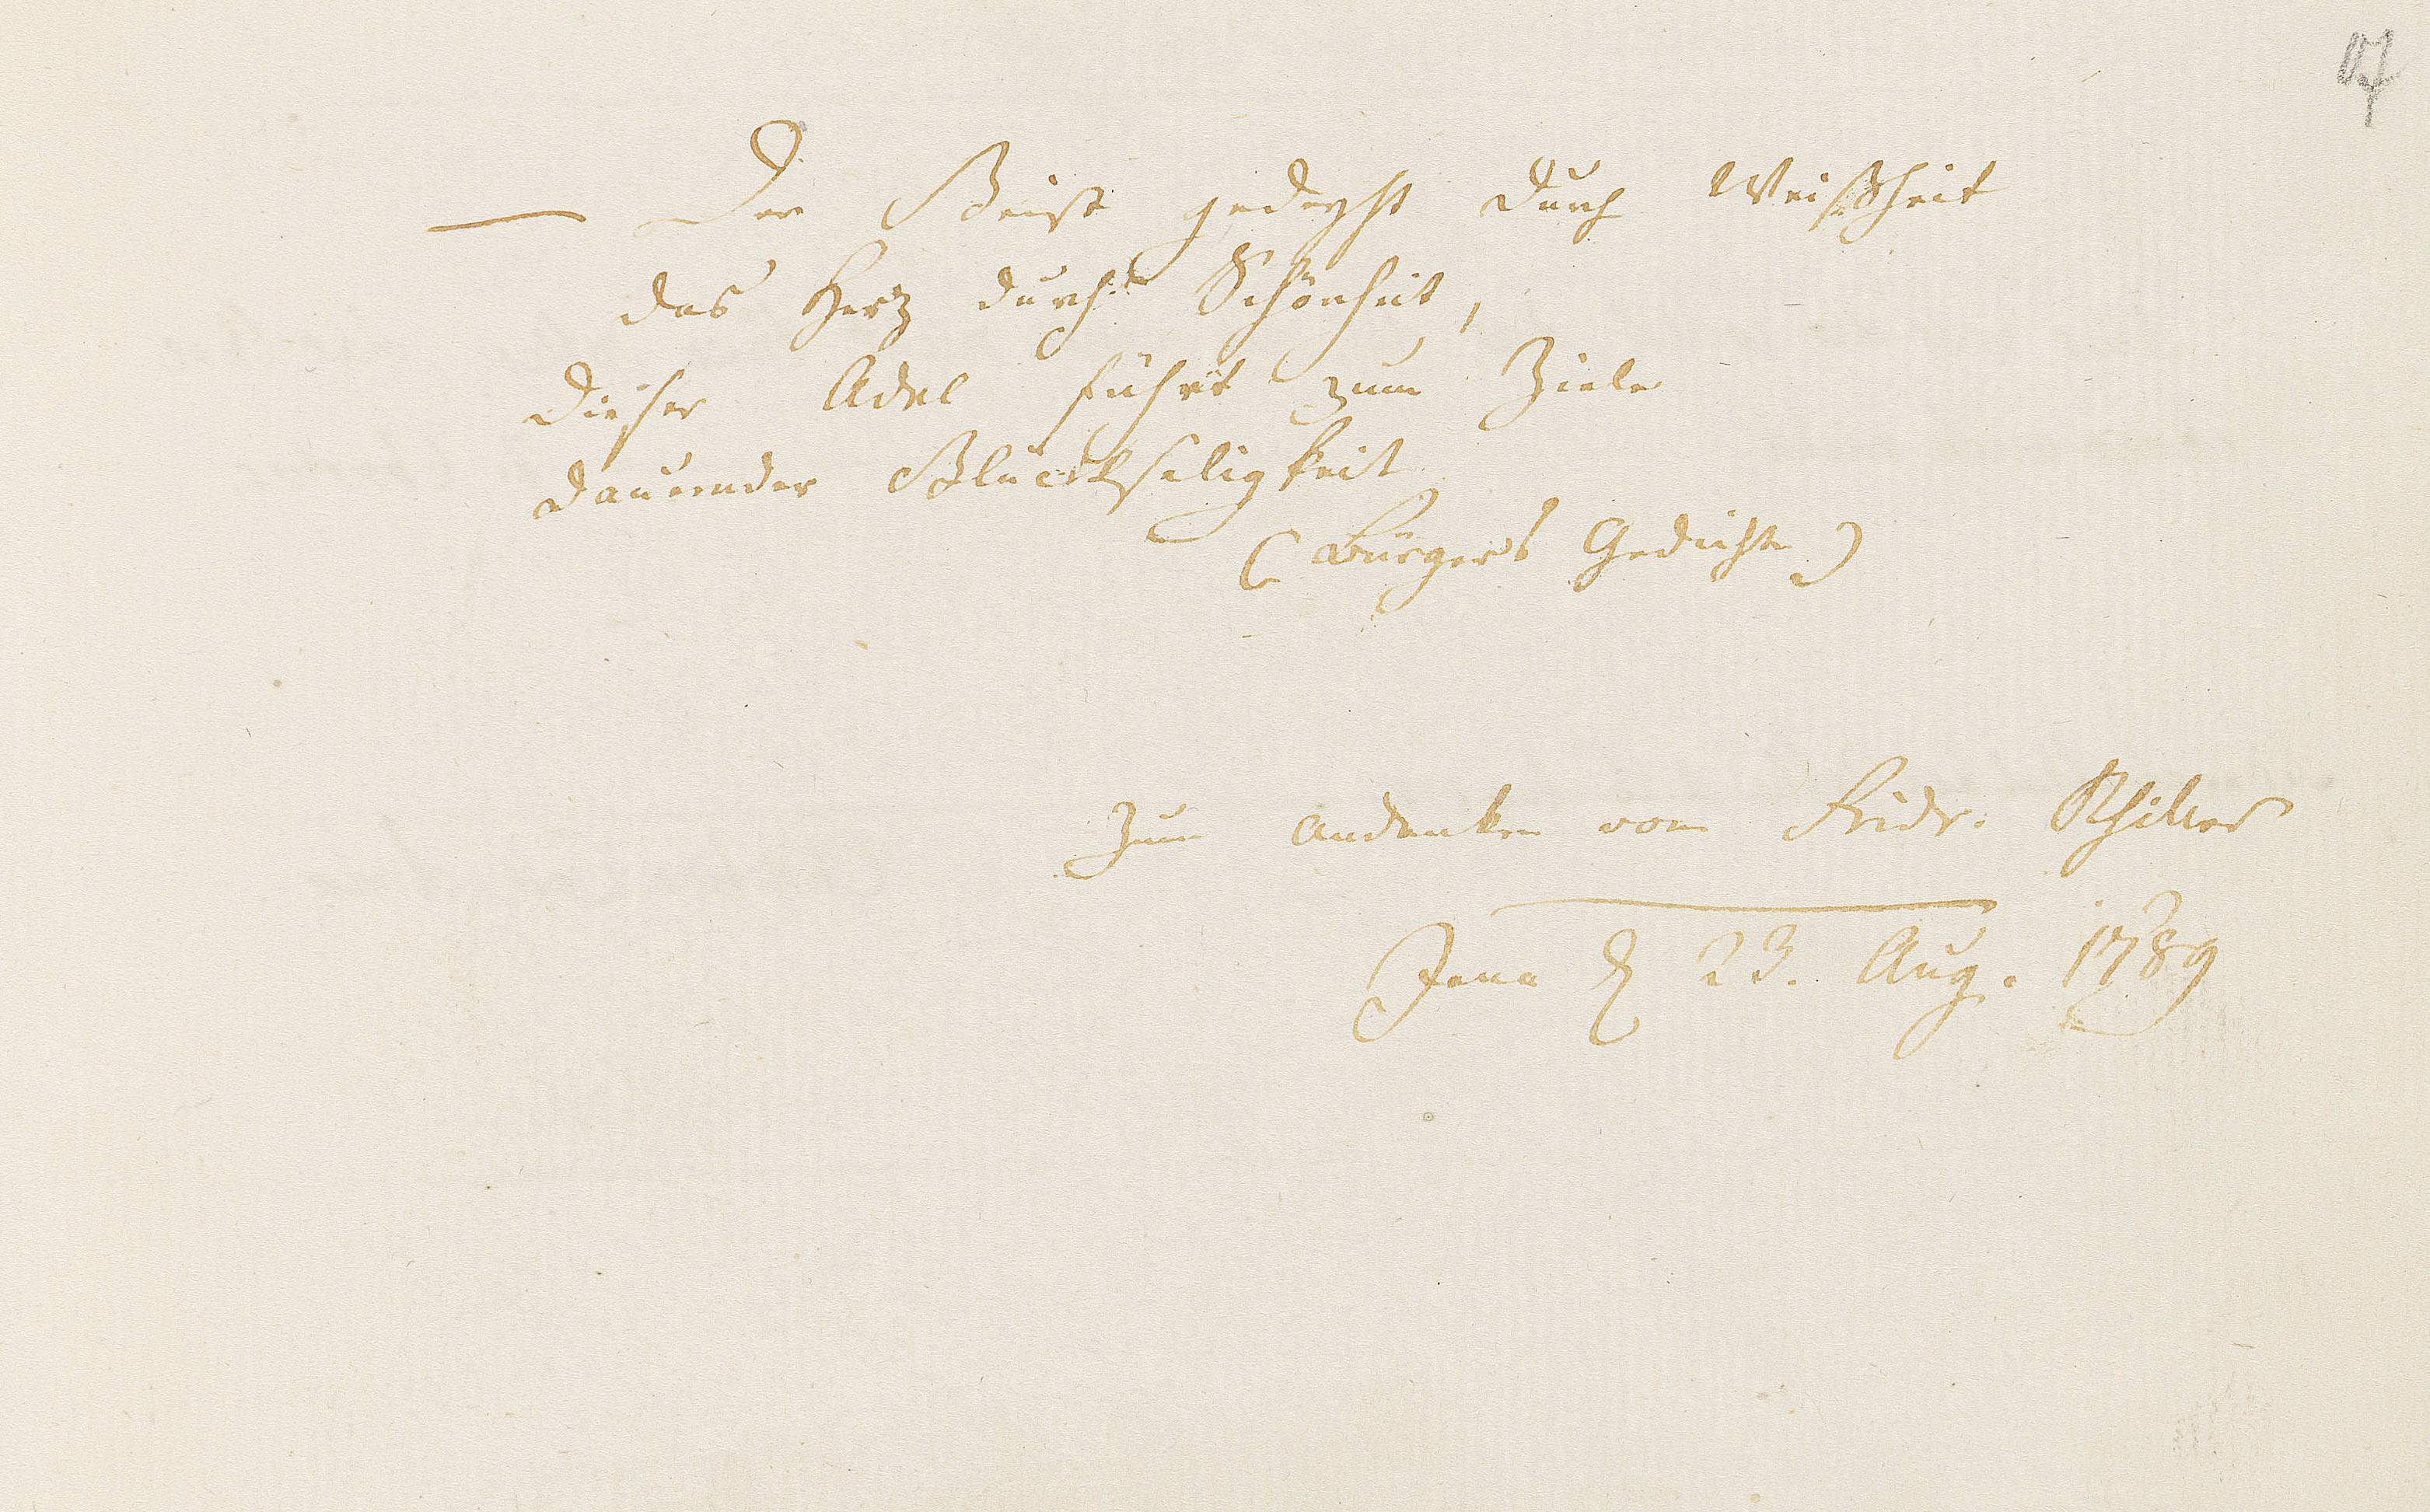 — Der Geist gedeyht durch Weißheit
das Herz durch Schönheit,
dieser Adel führt zum Ziele
dauernder Glückseligkeit
(Bürgers Gedichte)
Zum Andenken von Fridr. Schiller
Jena d 23. Aug. 1789